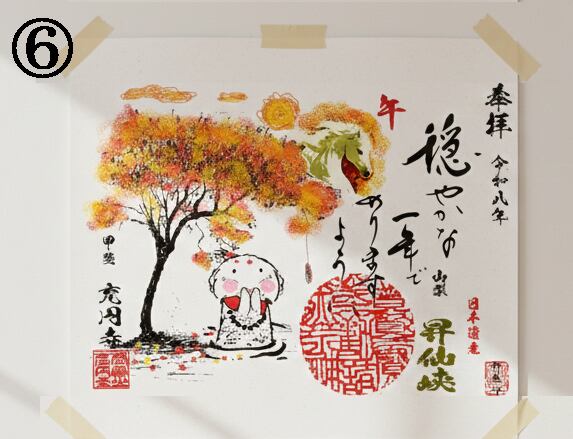 ⑥
奉拝
令和八年
午
穏やかな
一年で
ありますよう
山梨
日本遺産
昇仙峡
甲斐